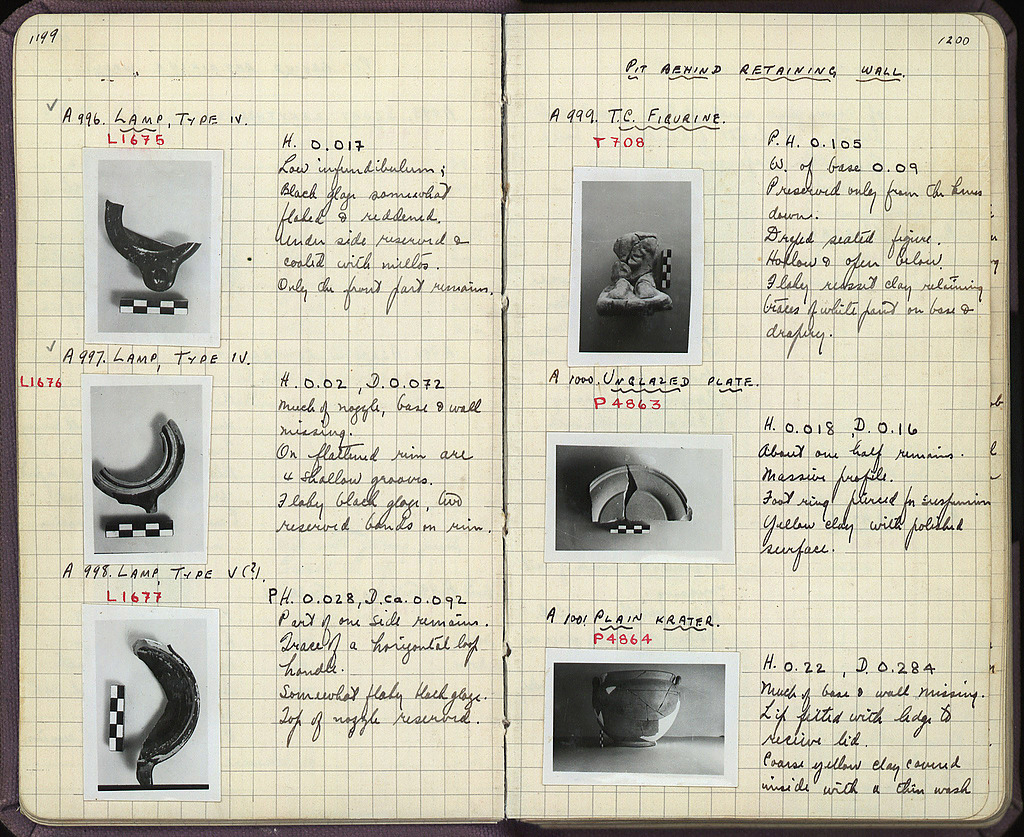 1199
A 996. LAMP, TYPE IV.
L1675
H. 0.017
Low infundibulum;
Black glaze somewhat
flaked & reddened.
Under side reserved &
coated with miltos.
Only the front part remains.
A 997. LAMP, TYPE IV.
L1676
H. 0.02, D. 0.072
Much of nozzle, base & wall
missing.
On flattened rim are
4 shallow grooves.
Flaky black glaze, two
reserved bands on rim.
A 998. LAMP, TYPE V(?).
L1677
PH. 0.028, D. ca. 0.092
Part of one side remains.
Trace of a horizontal loop
handle.
Somewhat flaky black glaze.
Top of nozzle reserved.
1200
PIT BEHIND RETAINING WALL.
A 999. T.C. FIGURINE.
T 708
P. H. 0.105
W. of base 0.09
Preserved only from the knees
down.
Draped seated figure.
Hollow & open below.
Flaky reddish clay retaining
traces of white paint on base &
drapery.
A 1000. UNGLAZED PLATE.
P 4863
H. 0.018, D. 0.16
About one half remains.
Massive profile.
Foot ring pierced for suspension
Yellow clay with polished
surface.
A 1001 PLAIN KRATER.
P4864
H. 0.22, D. 0.284
Much of base & wall missing.
Lip fitted with ledge to
receive lid.
Coarse yellow clay covered
inside with a thin wash